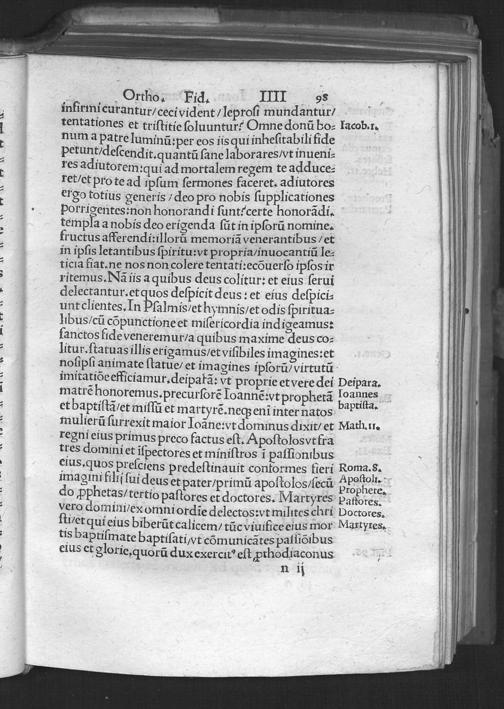 Ortho. Fid. IIII 98
infirmi curantur/ceci vident/leprosi mundantur/
tentationes et tristitie soluuntur? Omne donū bo- Iacob.1.
num a patre luminū: per eos iis qui inhesitabili fide
petunt/descendit. quantū sane laborares/vt inueni-
res adiutorem: qui ad mortalem regem te adduce-
ret/et pro te ad ipsum sermones faceret. adiutores
ergo totius generis/deo pro nobis supplicationes
porrigentes: non honorandi sunt? certe honorādi.
templa a nobis deo erigenda sūt in ipsorū nomine.
fructus afferendi: illorū memoriā venerantibus/et
in ipsis letantibus spiritu: vt propria/inuocantiū le-
ticia fiat. ne nos non colere tentati: ecōuerso ipsos ir
ritemus. Nā iis a quibus deus colitur: et eius serui
delectantur. et quos despicit deus: et eius despici-
unt clientes. In Psalmis/et hymnis/et odis spiritua-
libus/cū cōpunctione et misericordia indigeamus:
sanctos fide veneremur/a quibus maxime deus co-
litur. statuas illis erigamus/et visibiles imagines: et
nosipsi animate statue/et imagines ipsorū/virtutū
imitatiōe efficiamur. deiparā: vt proprie et vere dei Deipara.
matrē honoremus. precursorē Ioannē: vt prophetā Ioannes
et baptistā/et missū et martyrē. neqꝫ enī inter natos baptista.
mulierū surrexit maior Ioane: vt dominus dixit/et Math.11.
regni eius primus preco factus est. Apostolos vt fra
tres domini et īspectores et ministros ī passionibus
eius. quos presciens predestinauit conformes fieri Roma.8.
imagini filij sui deus et pater/primū apostolos/secū Apostoli.
do ꝓphetas/tertio pastores et doctores. Martyres Prophere.
Pastores.
vero domini/ex omni ordīe delectos: vt milites chri Doctores.
sti/et qui eius biberūt calicem/tūc viuifice eius mor Martyres.
tis baptismate baptisati/vt cōmunicātes passiōibus
eius et glorie, quorū dux exercitꝰ est ꝓthodiaconus
n ij